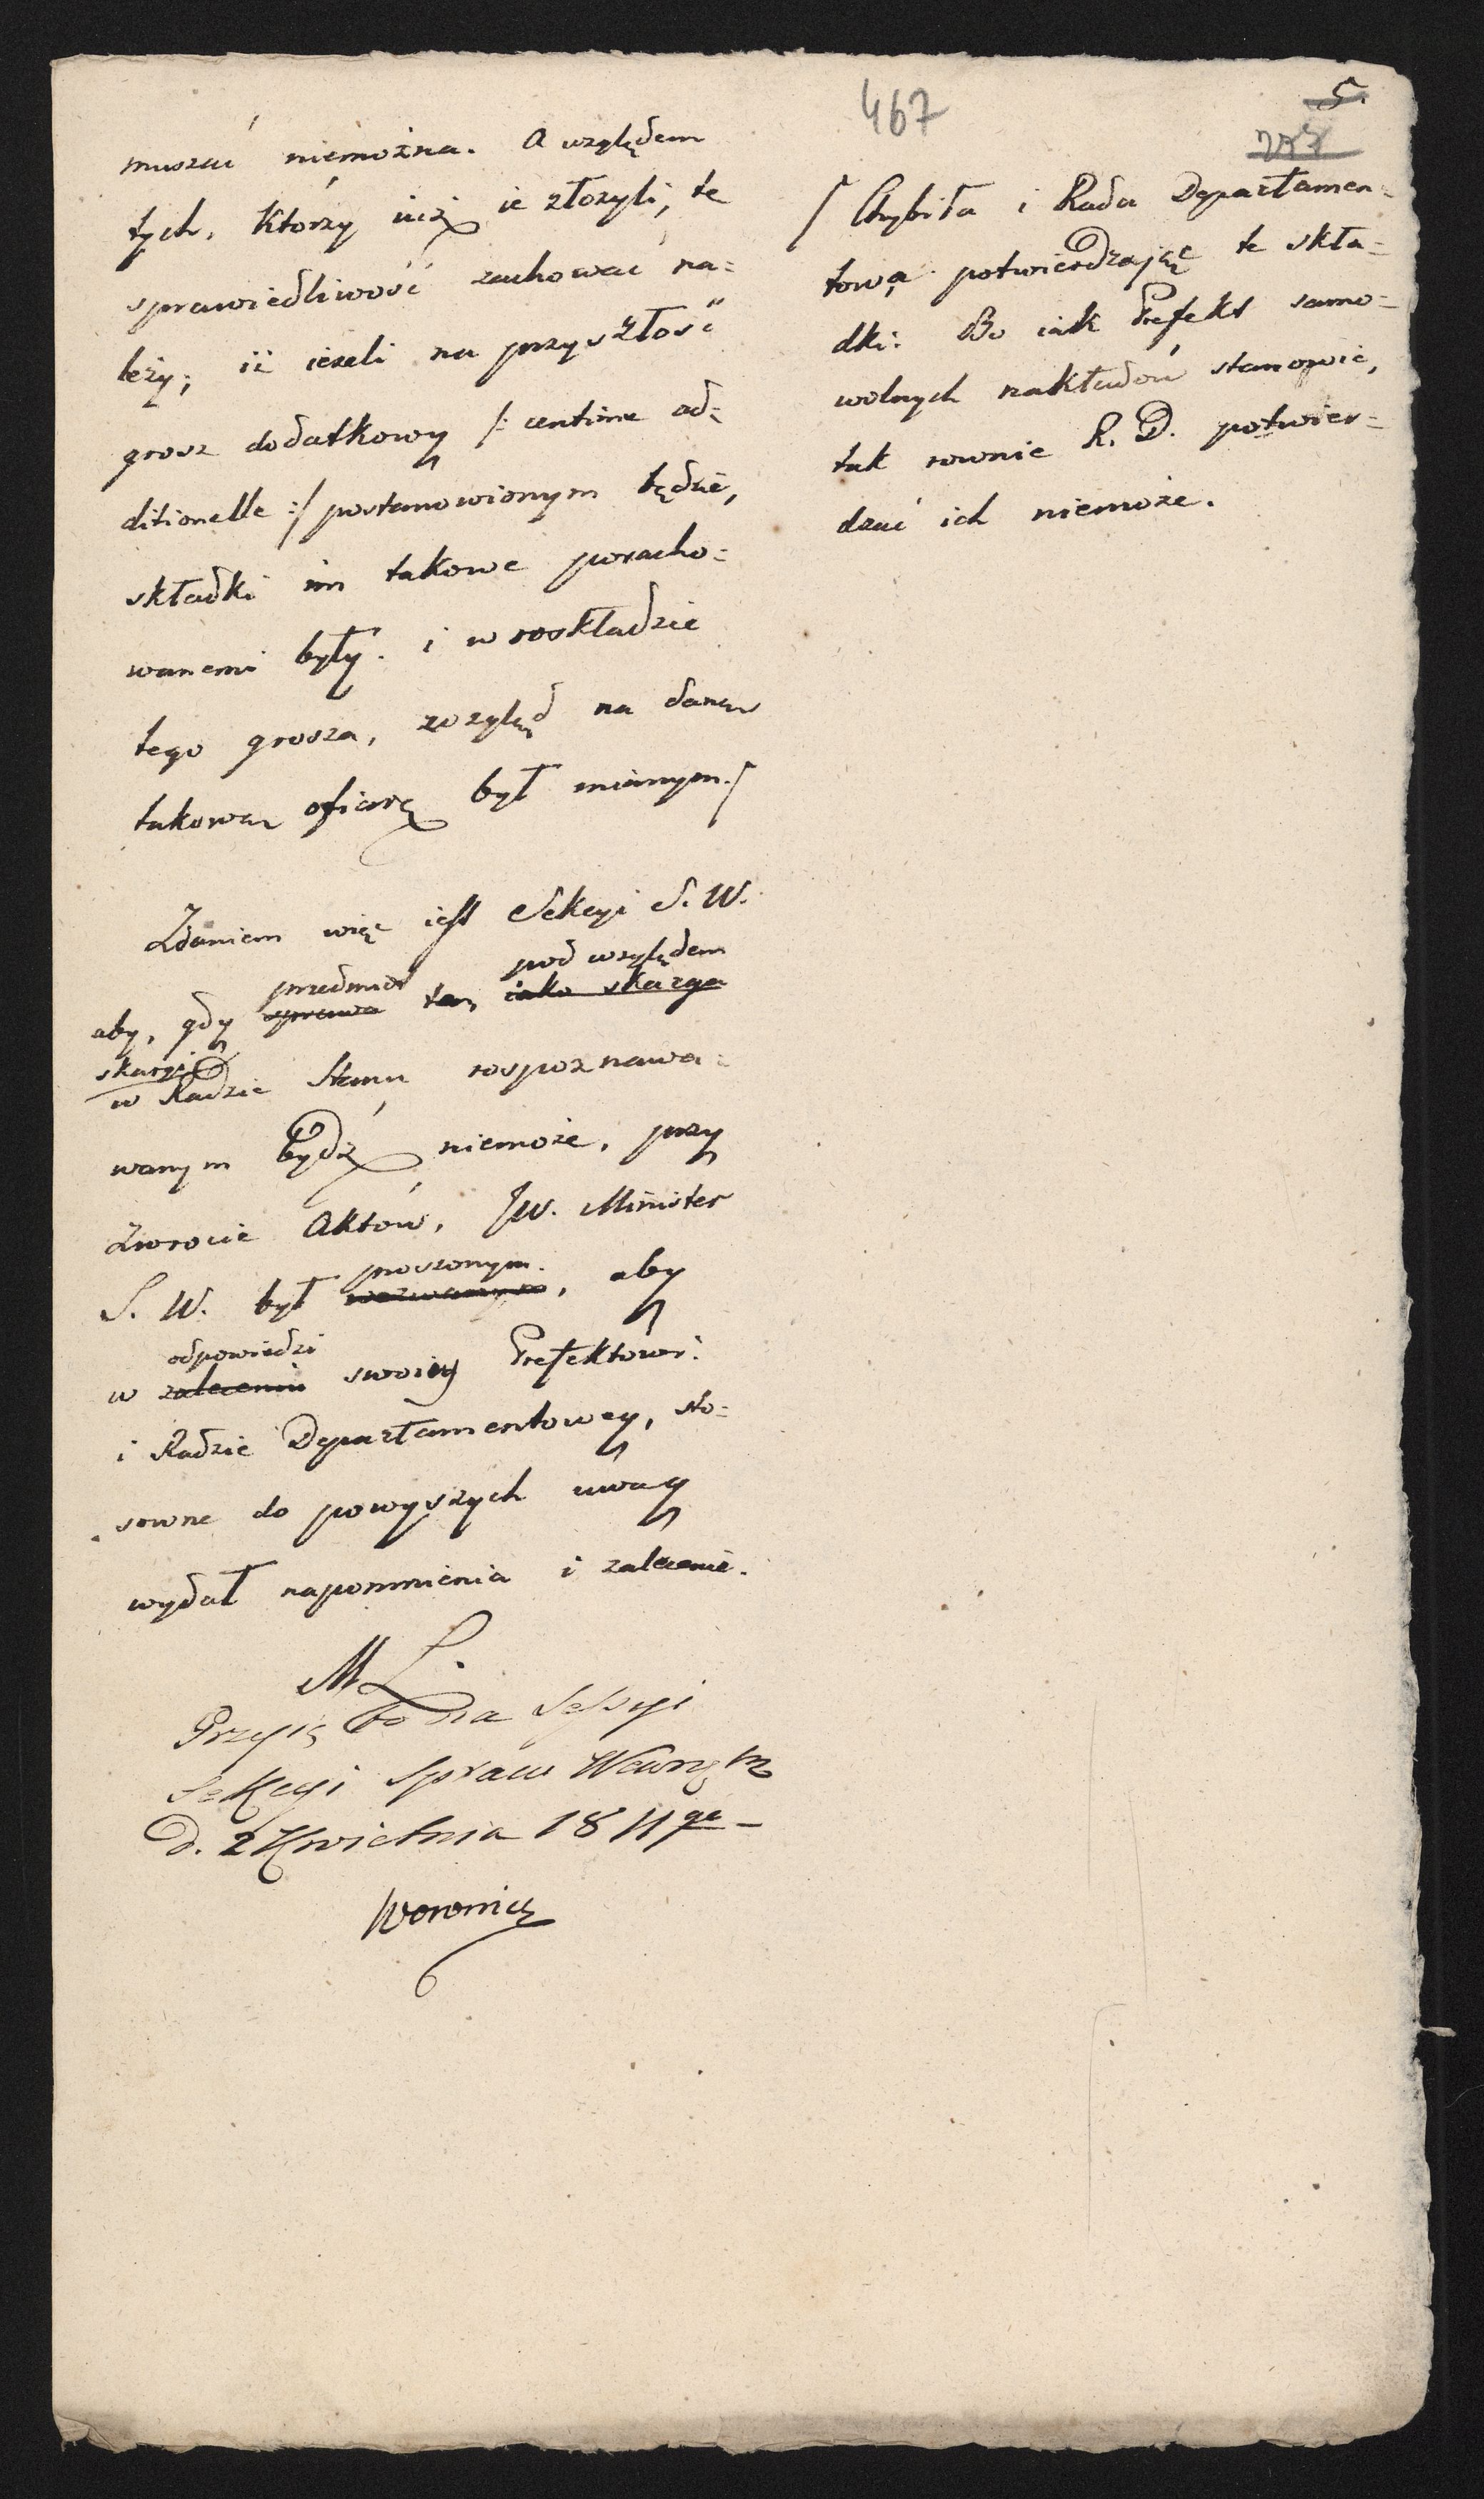 467
5.
muszać niemożna. A względem
tych, którzy iuż ie złożyli, te
sprawiedliwość zachować na=
leży; iż ieżeli na przyszłość
grosz dodatkowy /: centime ad=
ditionelle :/ postanowionym będzie,
składki im takowe poracho=
wanemi były. i w roskładzie
tego grosza, wzgląd na daną
takową ofiarę był mianym./
Zdaniem więc iest Sekcyi S. W.
przedmiot pod względem
aby, gdy sprawa ten, iako skarga
skargi
w Radzie Stanu rospoznawa=
wanym bydź niemoże, przy
Zwrocie Aktów, JW. Minister
proszonym
S. W. był wezwanym, aby
odpowiedzi
w zaleceniu swoiey Prefektowi
i Radzie Departamentowey, sto=
sowne do powyższych uwag
wydał napomnienia i zalecenie.
ML.
Przyięto na Sessyi
Sekcyi Spraw Wewnętrz
D. 2 Kwietnia 1811go
Woronicz
/ Chybiła i Rada Departamen=
towa potwierdzając te skła=
dki: Bo iak Prefekt samo=
wolnych nakładów stanowić,
tak rownie R. D. potwier=
dzać ich niemoże.